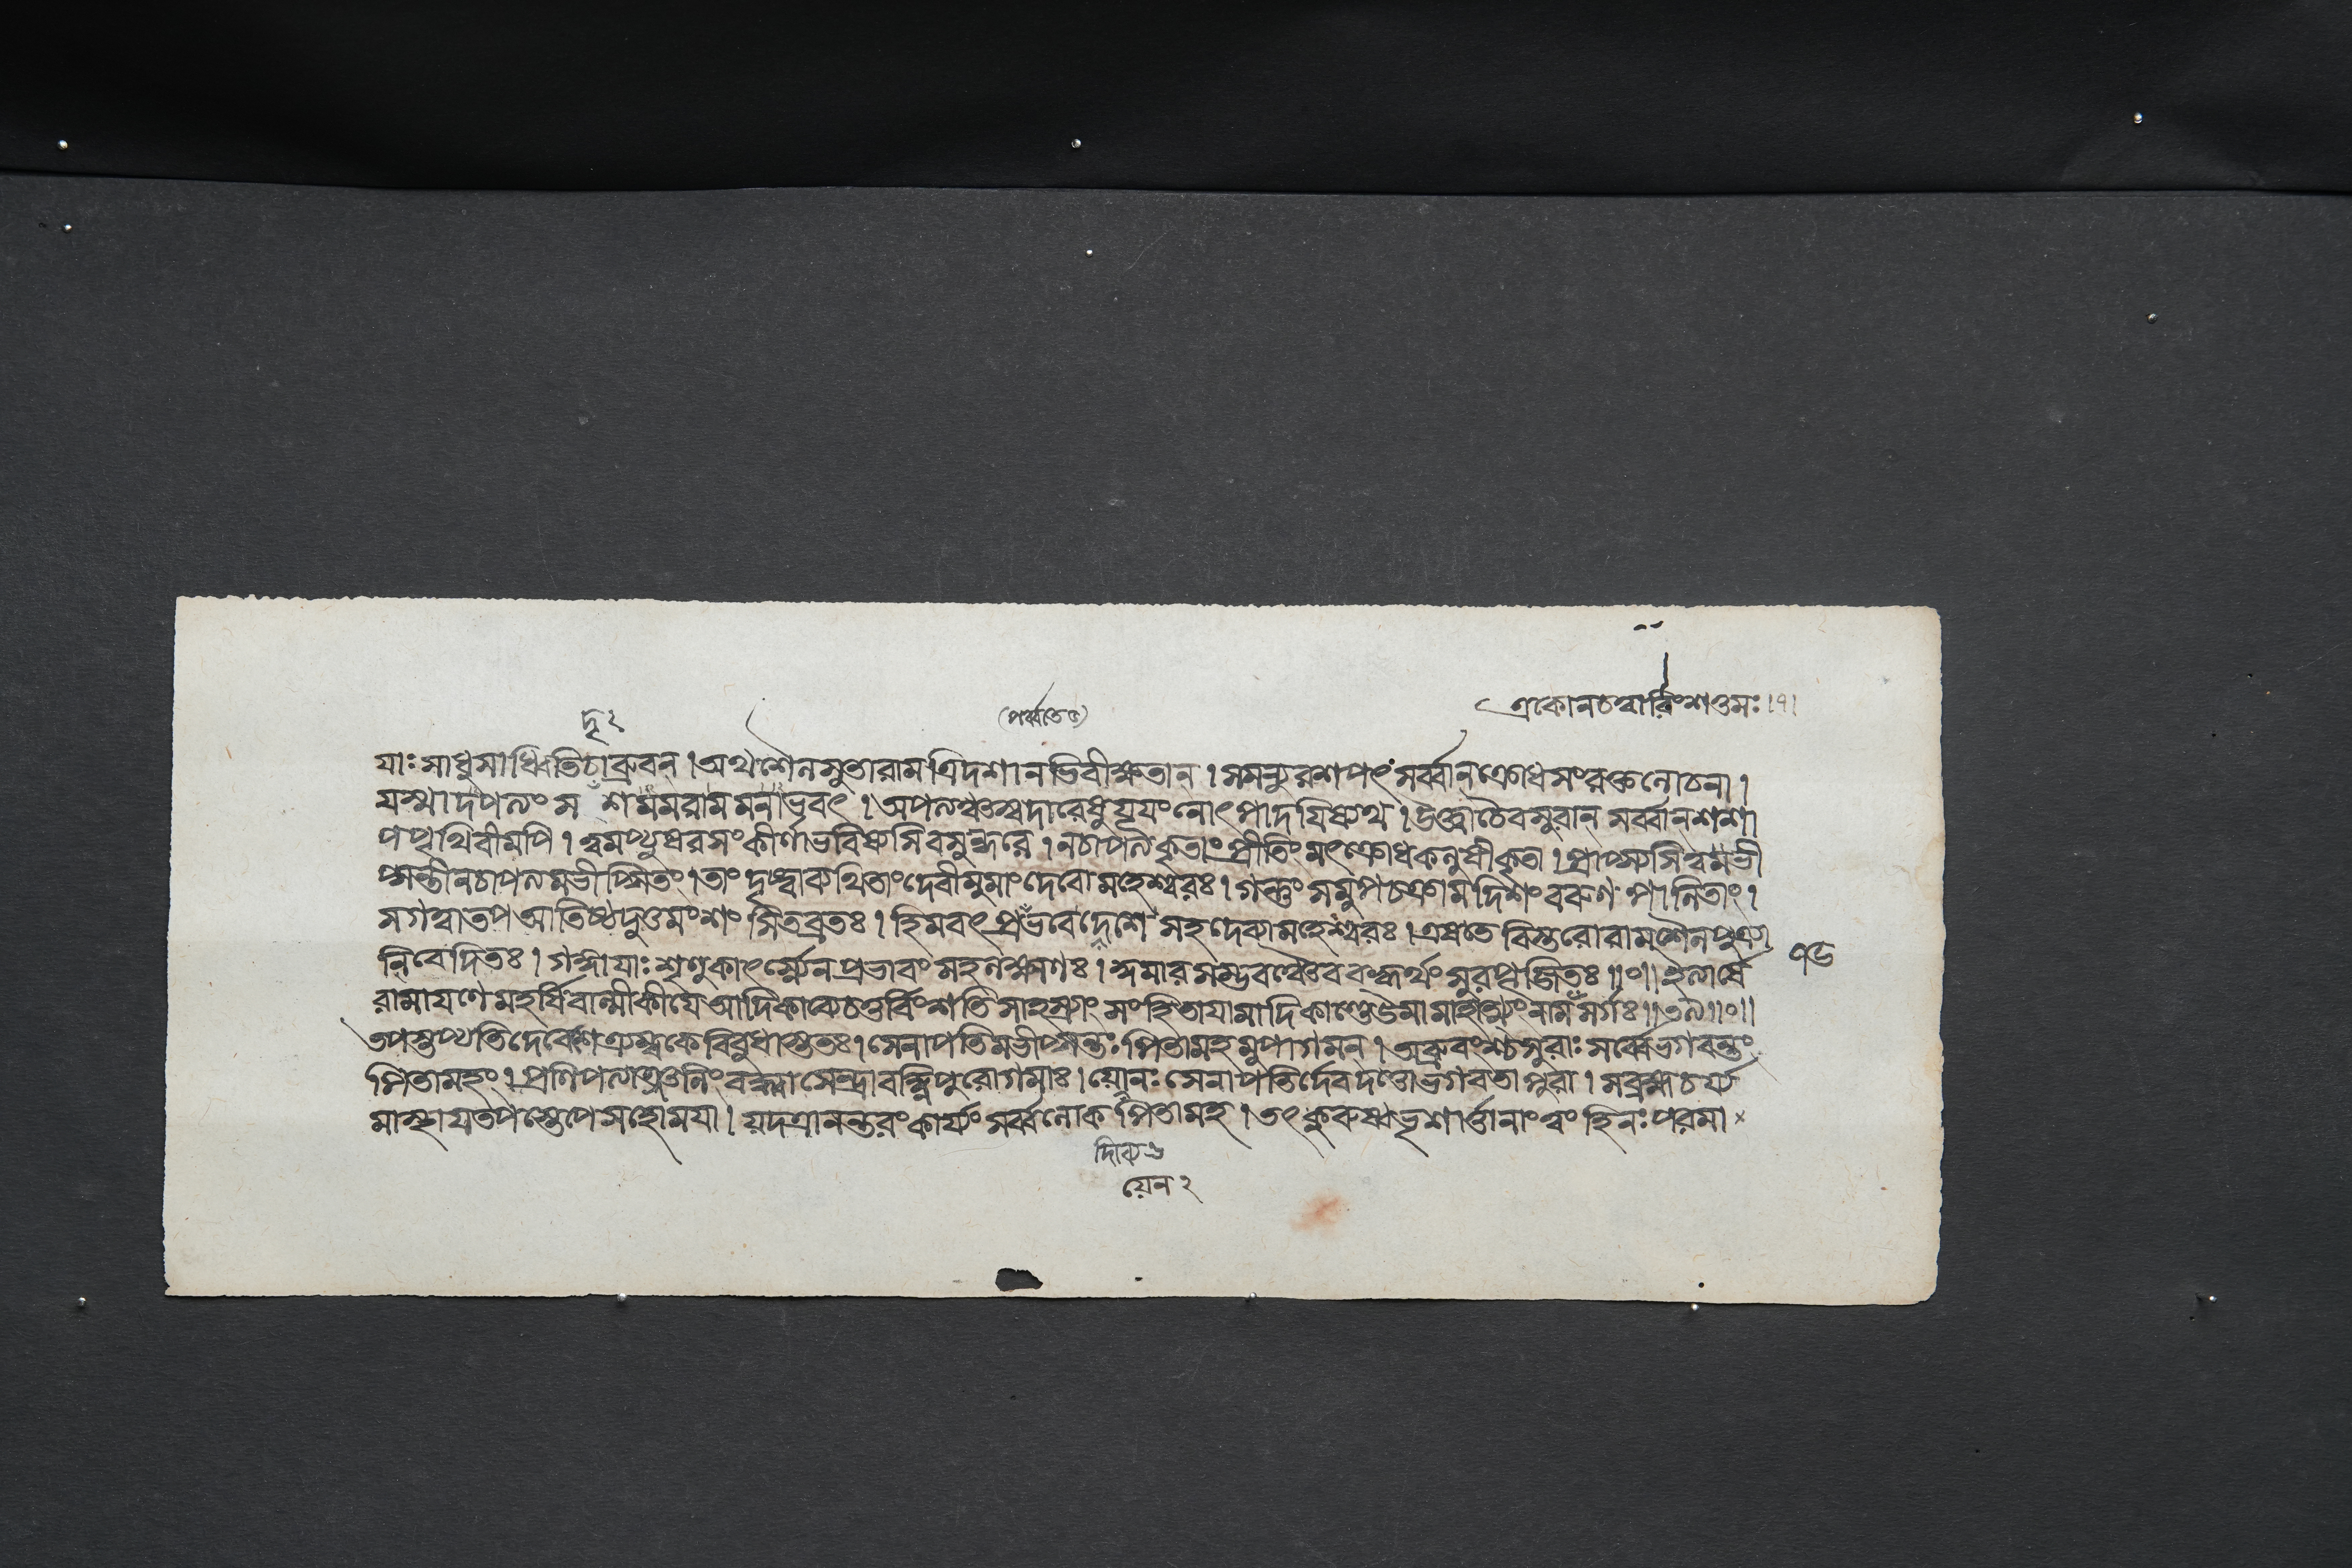 একোনচত্বারিংশত্তমঃ।৭।
দৃ২
(পর্ব্বতে৫)
যাঃ সাধুসাধ্বিতিচাব্রুবন্।অথশৈলসুতারামত্রিদশানভিবীক্ষ্যতান্।সমন্যুরশপৎসর্ব্বান্ক্রোধসংরক্তলোচনা।
যস্মাদপত্যং স শমমরামমনাভবৎ।অপত্যস্বঞ্চস্বদারেষুযূযংনোৎপাদযিষ্যথ।উক্ত্বাচৈবসুরান্ সর্ব্বান্শশা
পপৃথিবীমপি।ত্বমপ্যুষরসংকীর্ণাভবিষ্যসিবসুন্ধরে।নচাপত্যকৃতাংপ্রীতিংমৎক্রোধকলুষীকৃতা।প্রাপ্স্যসিত্বমভী
প্সন্তীনচাপত্যমভীপ্সিতং।তাং দৃষ্ট্বাব্যথিতাংদেবীমুমাংদেবোমহেশ্বরঃ।গন্তুং সমুপচক্রামদিশংবরুণপালিতাং।
সগত্বাতপআতিষ্ঠদুত্তমংশংসিতব্রতঃ।হিমবৎপ্রভবেদেশেমহাদেব্যামহেশ্বরঃ।এষতে বিস্তরোরামশৈলপুত্র্যা
নিবেদিতঃ।গঙ্গাযাঃশৃণুকাৎর্স্ন্যেনপ্রভাবংসহলক্ষ্মণঃ।কুমারসম্ভবঞ্চৈবব্রহ্মর্থংসুরপূজিতঃ॥০॥ইত্যার্ষে
৭৬
রামাযণেমহর্ষিবাল্মীকীযেআদিকাব্যেচতুর্বিংশতিসাহস্র্যাং সংহিতাযামাদিকাণ্ডেউমামাহাত্ম্যংনামসর্গঃ॥৩৯॥০॥
তপস্তপ্যতিদেবেশেত্র্যম্বকেবিবুধাস্ততঃ।সেনাপতিমভীপ্সন্তঃপিতামহমুপাগমন্।অব্রুবংশ্চসুরাঃসর্ব্বেভগবন্তং
পিতামহং।প্রণিপত্যাঞ্জলিংবদ্ধ্বাসেন্দ্রাবহ্নিপুরোগমাঃ।যোনঃসেনাপতির্দেবদত্তোভগবতাপুরা।সব্রহ্মচর্য্য
মাস্থাযতপস্তেপেসহোমযা।যদত্রানন্তরংকার্য্যংসর্ব্বলোকপিতামহ।তৎকুরুষ্বভৃশার্ত্তানাংত্বংহিনঃপরমা×
যেন২